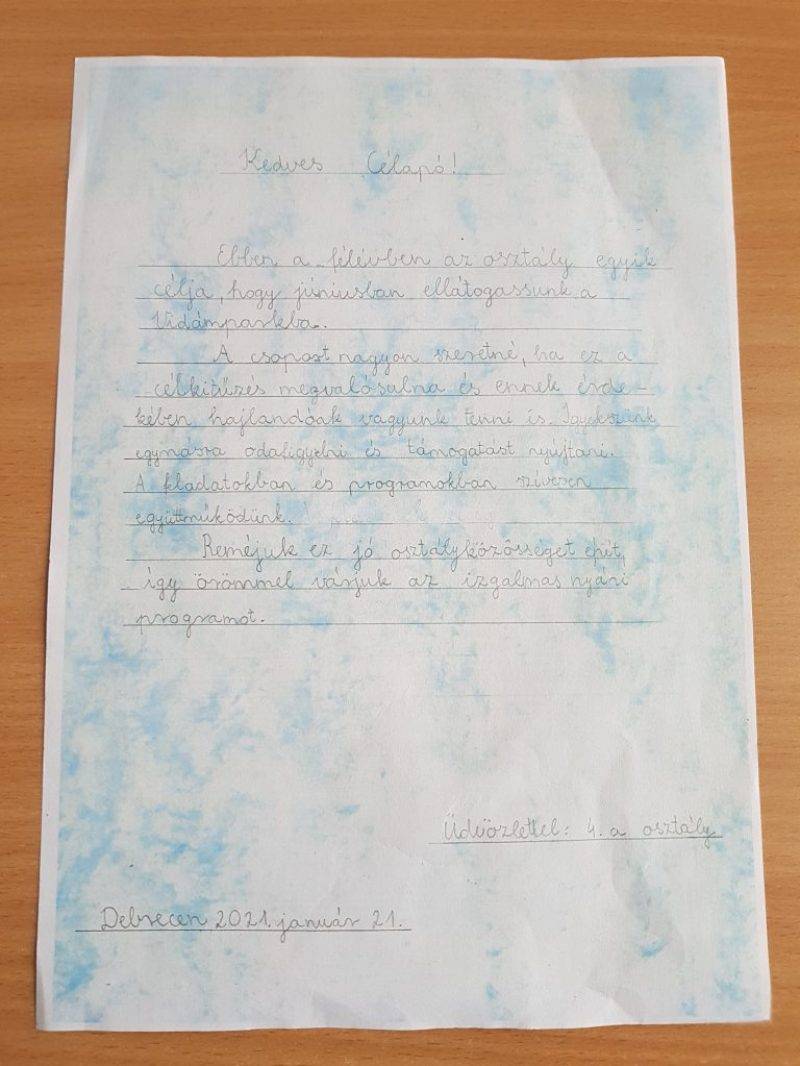 Kedves Célapó!
Ebben a félévben az osztály egyik
célja, hogy júniusban ellátogassunk a
Vidámparkba.
A csoport nagyon szeretné, ha ez a
célkitűzés megvalósulna és ennek érde-
kében hajlandóak vagyunk tenni is. Igyekszünk
egymásra odafigyelni és támogatást nyújtani.
A fladatokban és programokban szívesen
együttműködünk.
Reméjuk ez jó osztályközösséget épít,
így örömmel várjuk az izgalmas nyári
programot.
Üdvözlettel: 4. a osztály
Debrecen 2021. január 21.